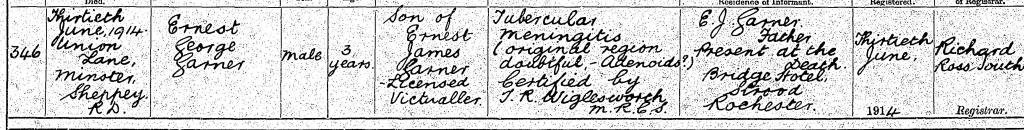 Died.
Residence of Informant.
Registered.
of Registrar.
346
Thirtieth
June, 1914
Union
Lane,
Minster,
Sheppey.
R.D.
Ernest
George
Garner
Male
3
years.
Son of
Ernest
James
Garner
Licensed
Victualler.
Tubercular
meningitis
(original region
doubtful - Adenoids?)
Certified by
T. R. Wiglesworth
M.R.C.S.
E. J. Garner.
Father
Present at the
Death.
Bridge Hotel,
Strood
Rochester.
Thirtieth
June,
1914
Richard
Ross South
Registrar.